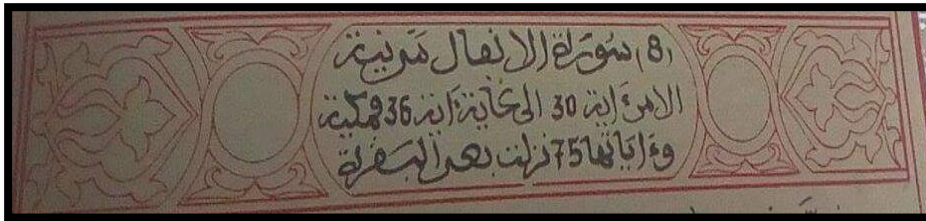 (8) سُورَة الانفال مَدنية
الا من ءاية 30 الى غاية ءاية 36 فمكية
وءاياتها 75 نزلت بعد البَقرة